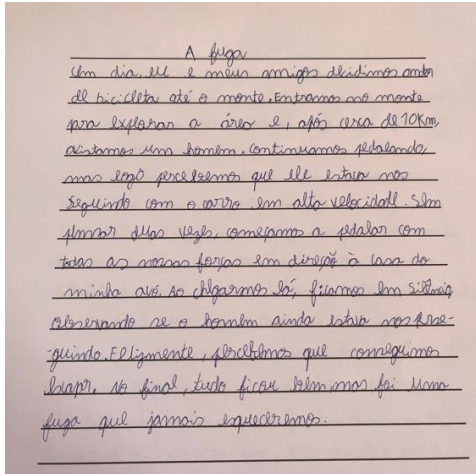 A fuga
Um dia, eu e meus amigos decidimos andar
de bicicleta até o monte. Entramos no monte
pra explorar a área e, após cerca de 10Km,
avistamos um homem. Continuamos pedalando,
mas logo percebemos que ele estava nos
seguindo com o carro em alta velocidade. Sem
pensar duas vezes, começamos a pedalar com
todas as nossas forças em direção à casa da
minha avó. Ao chegarmos lá, ficamos em silêncio,
observando se o homem ainda estava nos perse-
-guindo. Felizmente, percebemos que conseguimos
escapar. No final, tudo ficou bem, mas foi uma
fuga que jamais esqueceremos.